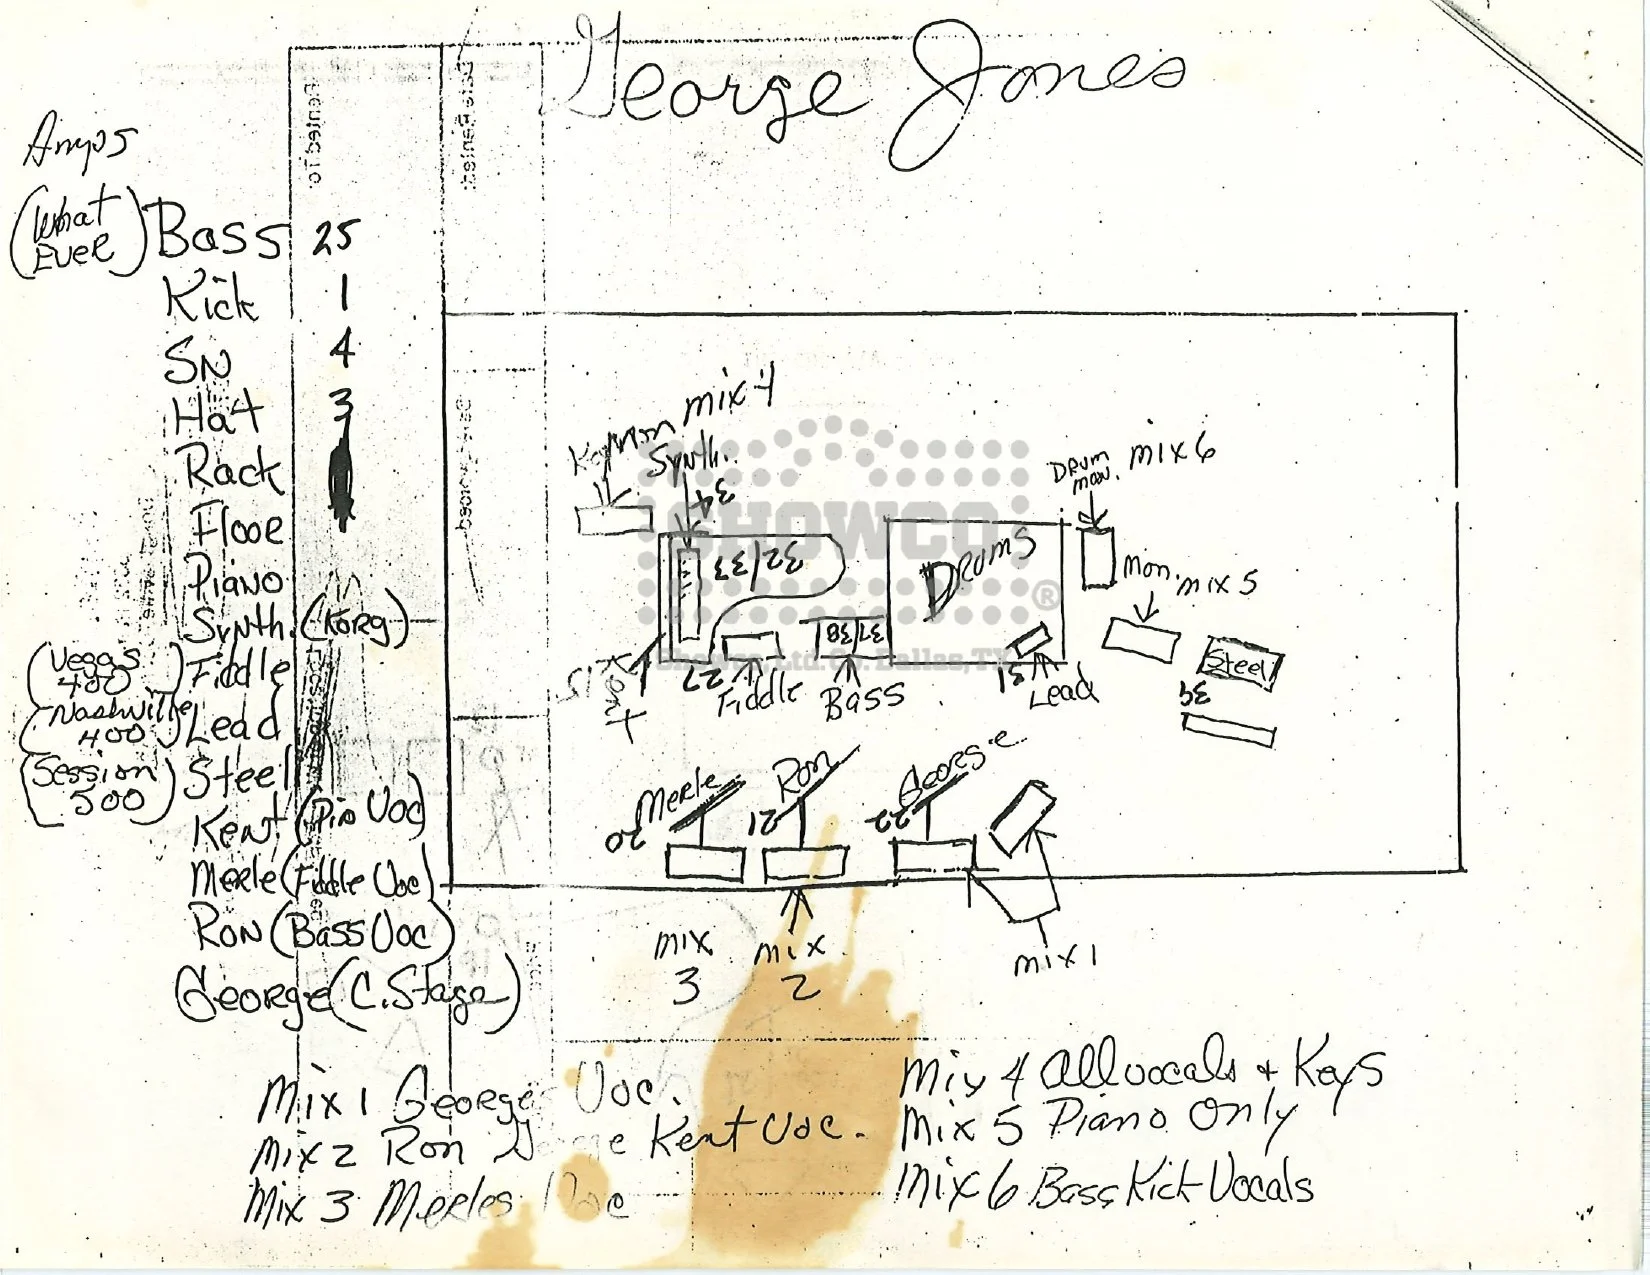 George Jones
Amps
(What Ever) Bass 25
Kick 1
SN 4
Hat 3
Rack
Floor
Piano
Synth. (Korg)
(Vegas 400) Fiddle
(Nashville 400) Lead
(Session 500) Steel
Kent (Pia Voc)
Merle (Fiddle Voc)
Ron (Bass Voc)
George (C. Stage)
Mon mix 4
Synth.
34
33/32
Drums
Drum mon. mix 6
Mon. mix 5
Steel
39
Kent
27
Fiddle
38/37
Bass
31
Lead
SHOWCO®
Showco, Ltd. Co. Dallas, TX
Merle
20
Ron
21
George
22
mix 3
mix 2
mix 1
Mix 1 George Voc.
Mix 2 Ron Kent Voc.
Mix 3 Merles Voc
Mix 4 All vocals + Keys
Mix 5 Piano Only
Mix 6 Bass Kick Vocals